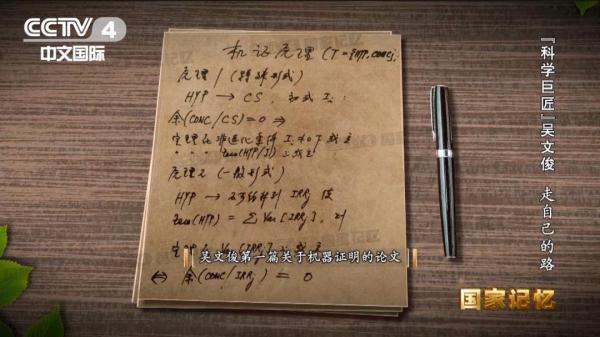 CCTV 4
中文国际
机证原理 (T=HYP, conc)
原理 1 (特殊形式)
HYP → CS, 初式 Ii
余(CONC/CS)=0 ⇒
定理在非退化条件 Ii≠0 下成立
Zero(HYP/J) 上成立
原理 2 (一般形式)
HYP → 不可约升列 IRRj 使
Zero(HYP) = ∑ Var[IRRj], 对
Var[IRRj]
吴文俊第一篇关于机器证明的论文
⇔ 余(CONC/IRRj) = 0
『科学巨匠』吴文俊 走自己的路
国家记忆